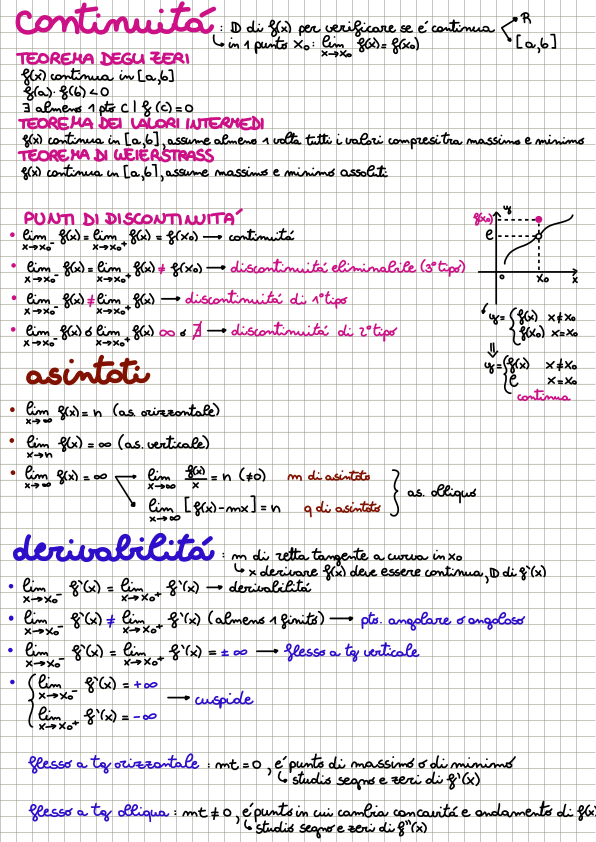 Continuitá : D di f(x) per verificare se é continua → R
↳ in 1 punto x₀: lim x→x₀ f(x) = f(x₀) → [a,b]
TEOREMA DEGLI ZERI
f(x) continua in [a,b]
f(a)·f(b)<0
∃ almeno 1 pto C | f(c)=0
TEOREMA DEI VALORI INTERMEDI
f(x) continua in [a,b], assume almeno 1 volta tutti i valori compresi tra massimo e minimo
TEOREMA DI WEIERSTRASS
f(x) continua in [a,b], assume massimo e minimo assoluti
PUNTI DI DISCONTINUITA'
• lim x→x₀⁻ f(x) = lim x→x₀⁺ f(x) = f(x₀) → continuitá
• lim x→x₀⁻ f(x) = lim x→x₀⁺ f(x) ≠ f(x₀) → discontinuitá eliminabile (3°tipo)
• lim x→x₀⁻ f(x) ≠ lim x→x₀⁺ f(x) → discontinuitá di 1°tipo
• lim x→x₀⁻ f(x) o lim x→x₀⁺ f(x) ∞ o ∄ → discontinuitá di 2°tipo
y
f(x₀)
ℓ
0 x₀ x
↙ y = { f(x) x≠x₀
f(x₀) x=x₀
⇓
y = { f(x) x≠x₀
ℓ x=x₀
continua
asintoti
• lim x→∞ f(x) = n (as. orizzontale)
• lim x→n f(x) = ∞ (as. verticale)
• lim x→∞ f(x) = ∞ → lim x→∞ f(x)/x = n (≠0) m di asintoto
→ lim x→∞ [f(x)-mx] = n q di asintoto } as. obliquo
derivabilitá : m di retta tangente a curva in x₀
↳ x derivare f(x) deve essere continua, D di f'(x)
• lim x→x₀⁻ f'(x) = lim x→x₀⁺ f'(x) → derivabilitá
• lim x→x₀⁻ f'(x) ≠ lim x→x₀⁺ f'(x) (almeno 1 finito) → pto. angolare o angoloso
• lim x→x₀⁻ f'(x) = lim x→x₀⁺ f'(x) = ±∞ → flesso a tg verticale
• { lim x→x₀⁻ f'(x) = +∞
lim x→x₀⁺ f'(x) = -∞ → cuspide
flesso a tg orizzontale : mt = 0, é punto di massimo o di minimo
↳ studio segno e zeri di f'(x)
flesso a tg obliqua : mt ≠ 0, é punto in cui cambia concavitá e andamento di f(x)
↳ studio segno e zeri di f''(x)